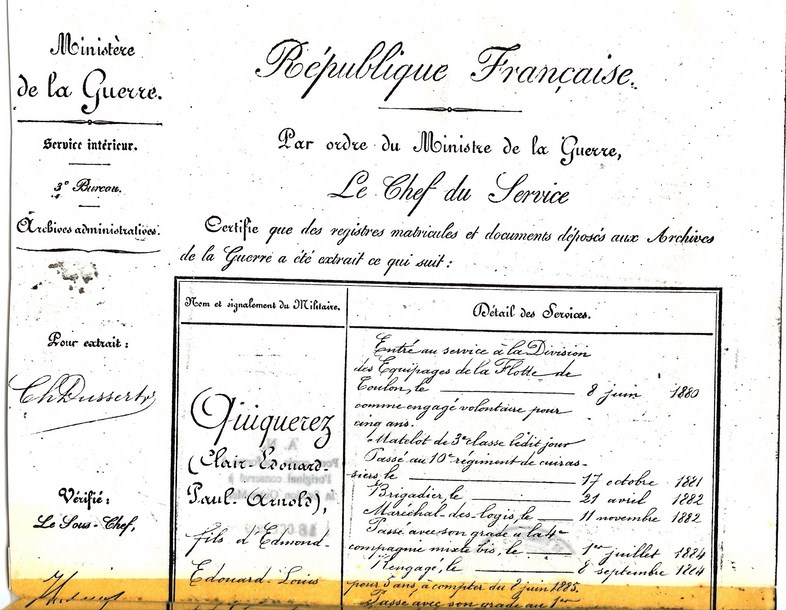 Ministère
de la Guerre.
Service intérieur.
3e Bureau.
Archives administratives.
Pour extrait :
Ch Dussert
Vérifié :
Le Sous-Chef,
République Française.
Par ordre du Ministre de la Guerre,
Le Chef du Service
Certifie que des registres matricules et documents déposés aux Archives
de la Guerre a été extrait ce qui suit :
Nom et signalement du Militaire.
Quiquerez
(Clair-Edouard-
Paul-Arnold),
fils d'Edmond-
Edouard-Louis
Détail des Services.
Entré au service à la Division
des Equipages de la Flotte de
Toulon, le 8 juin 1880
comme engagé volontaire pour
cinq ans.
Matelot de 3e classe ledit jour
Passé au 10e régiment de cuiras-
siers, le 17 octobre 1881
Brigadier, le 21 avril 1882
Maréchal-des-logis, le 11 novembre 1882
Passé avec son grade à la 4e
compagnie mixte bis, le 1er juillet 1884
Rengagé, le 8 septembre 1884
pour 5 ans, à compter du 8 juin 1885.
Passé avec son grade au 1er